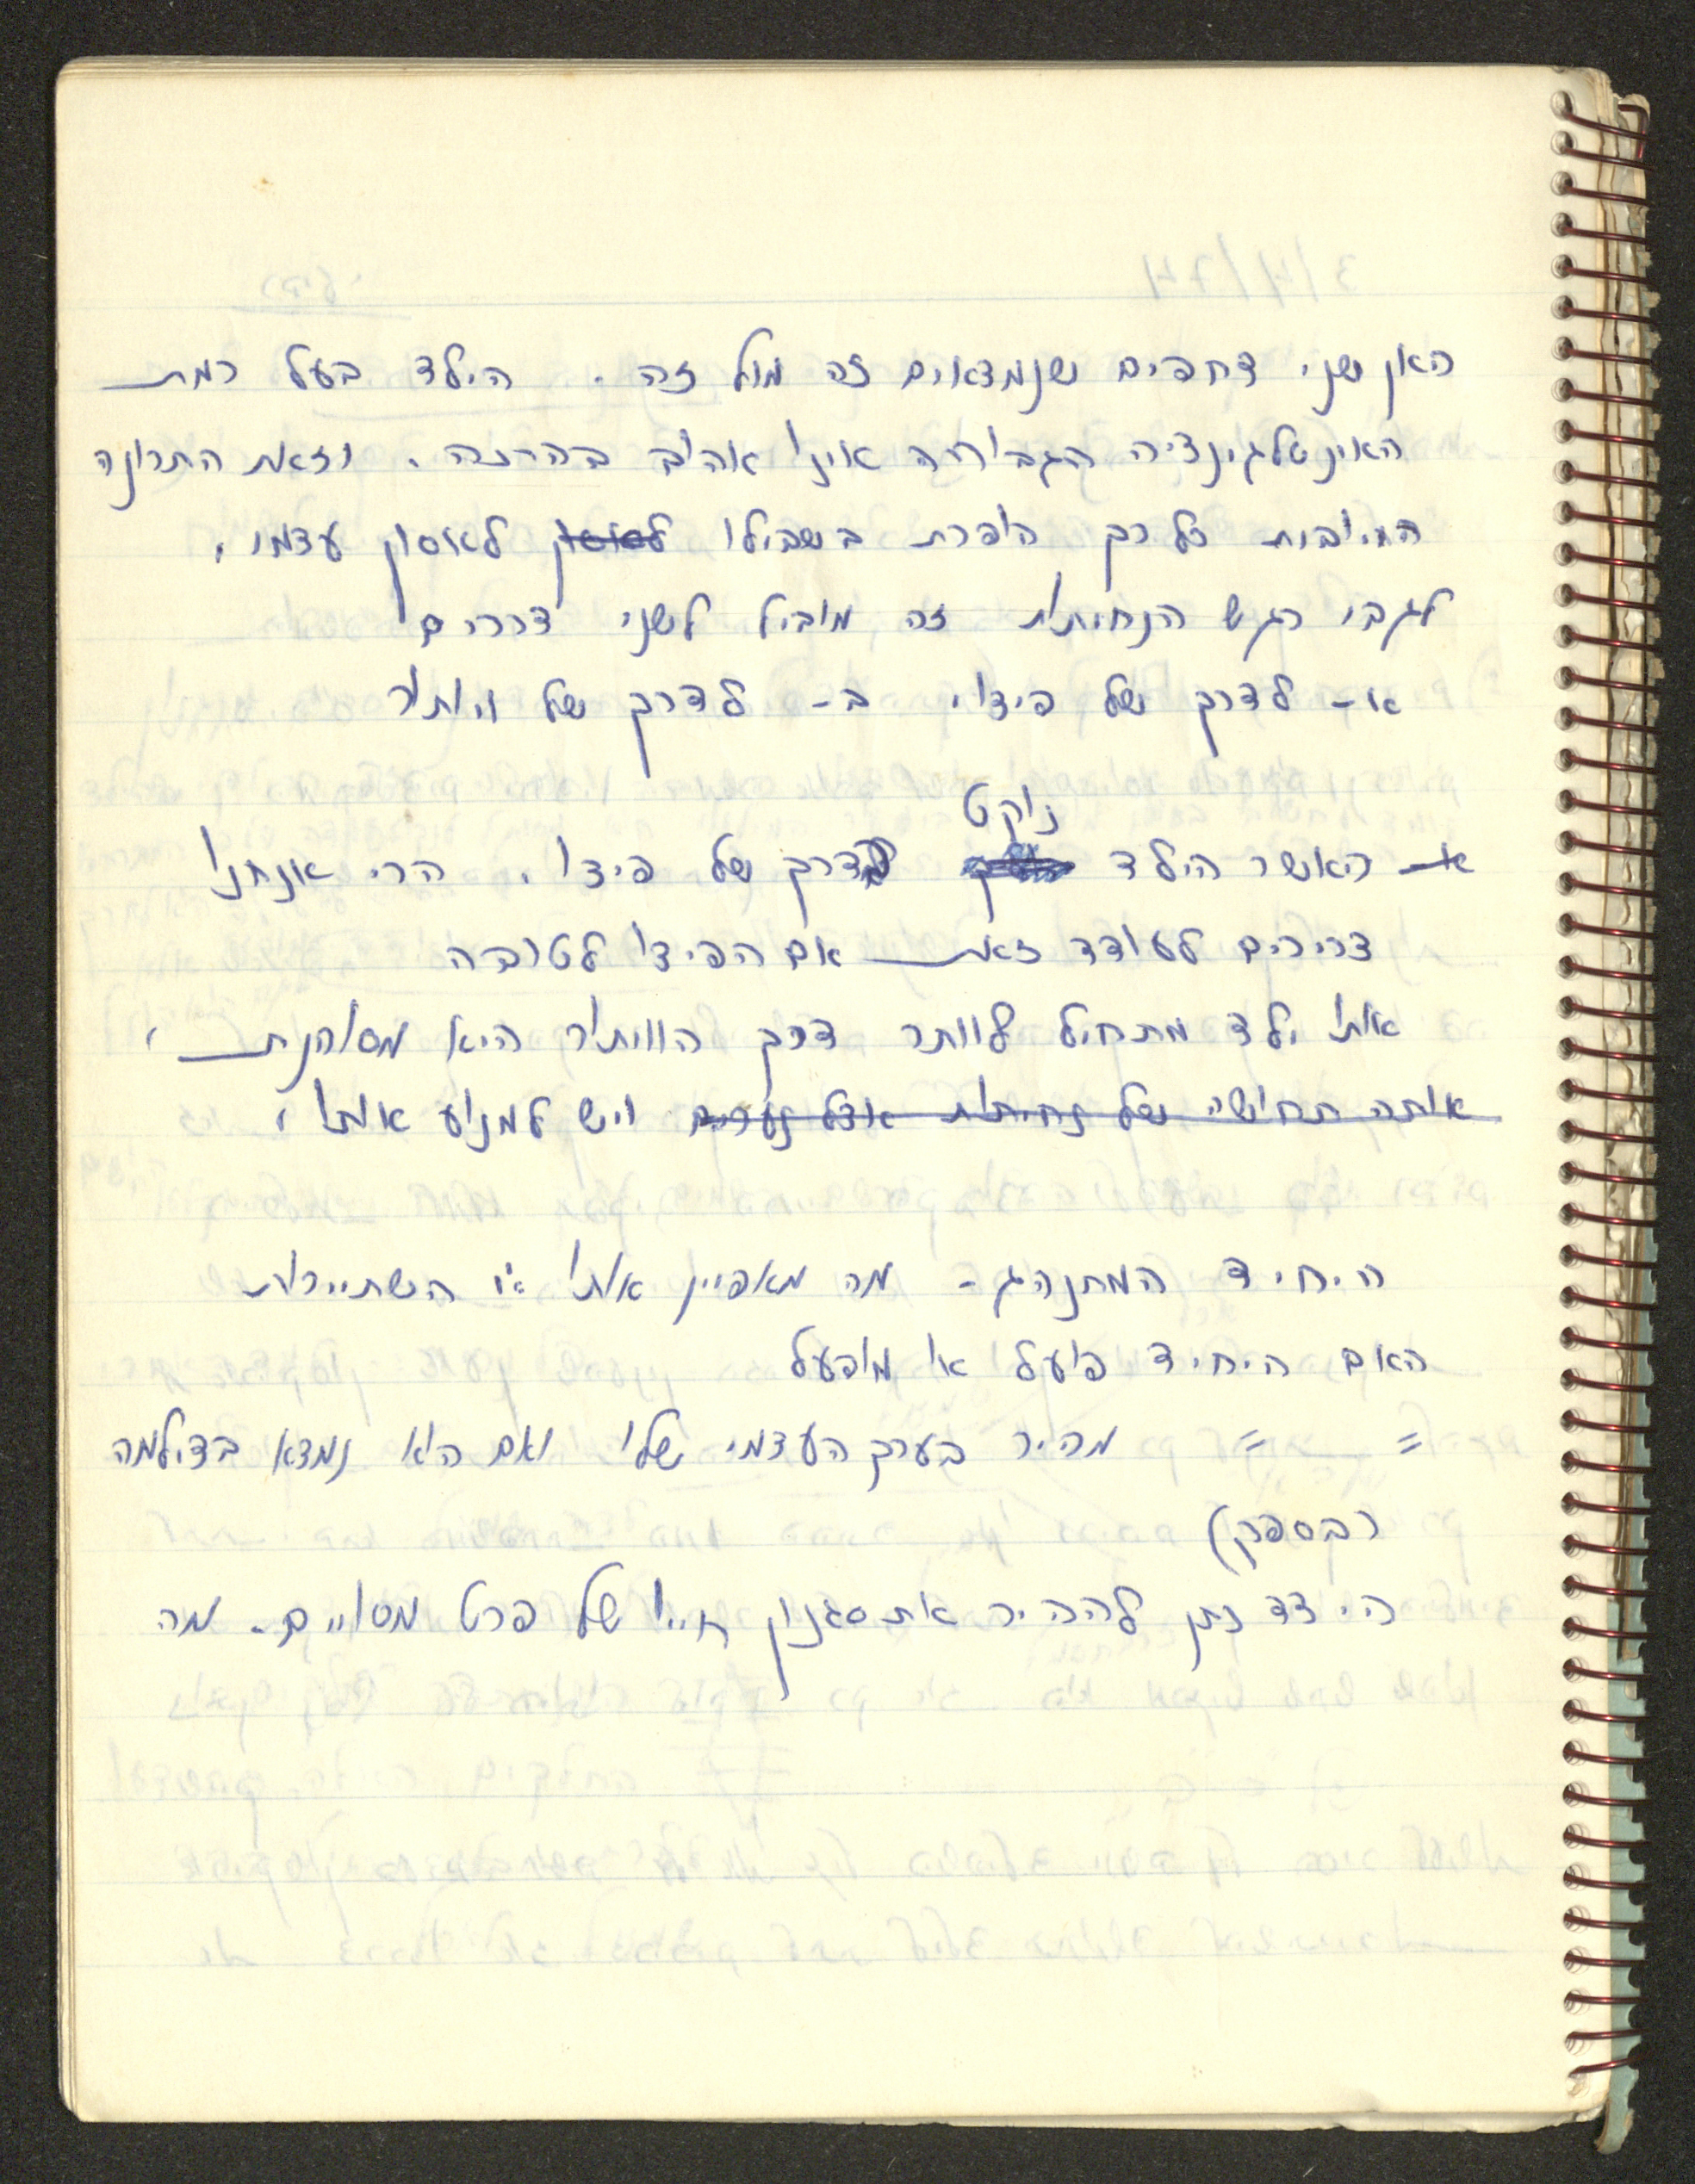 כאן שני דחפים שנמצאים זה מול זה. הילד בעל רמת
האינטלגינציה הגבוהה אינו אהוב בחברה. וזאת התכונה
החיובית כל כך הופכת בשבילו לאסון לאסון עצמו.
לגבי רגש הנחיתות זה מוביל לשני דרכים
א - לדרך של פיצוי ב - לדרך של ויתור
נוקט
א כאשר הילד בדרך של פיצוי. הרי אנחנו
צריכים לעודד זאת אם הפיצוי לטובה
אותו ילד מתחיל לוותר דרך הוויתור היא מסוכנת,
אותה תחושה של נחיתות אצל נערים ויש למנוע אותו.
היחיד המתנהג - מה מאפיין אותו א"ו השתייכות
האם היחיד פועל או מופעל
= = מכיר בערך העצמי שלו ואם הוא נמצא בדילמה
(בספק)
כיצד נתן להכיר את סגנון חייו של פרט מסויים. מה